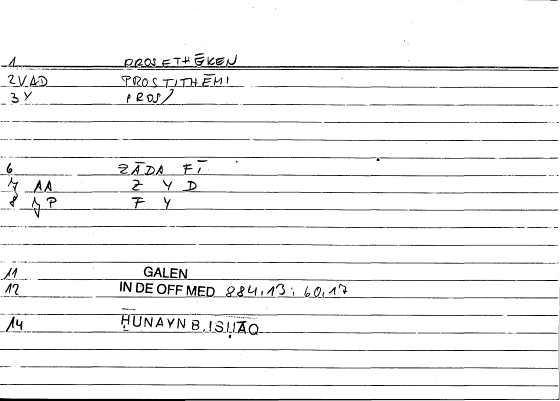 1 PROSETHĒKEN
2VAD PROSTITHĒMI
3Y PROS/
6 ZĀDA FĪ
7 AA Z Y D
8 JP F Y
11 GALEN
12 IN DE OFF MED 884,13; 60,17
14 ḤUNAYN B.ISḤĀQ